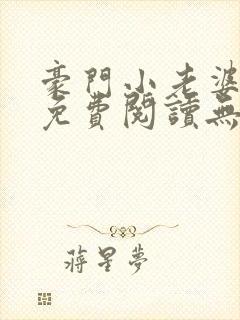 豪門小老婆
免費閱讀無
蔣星夢